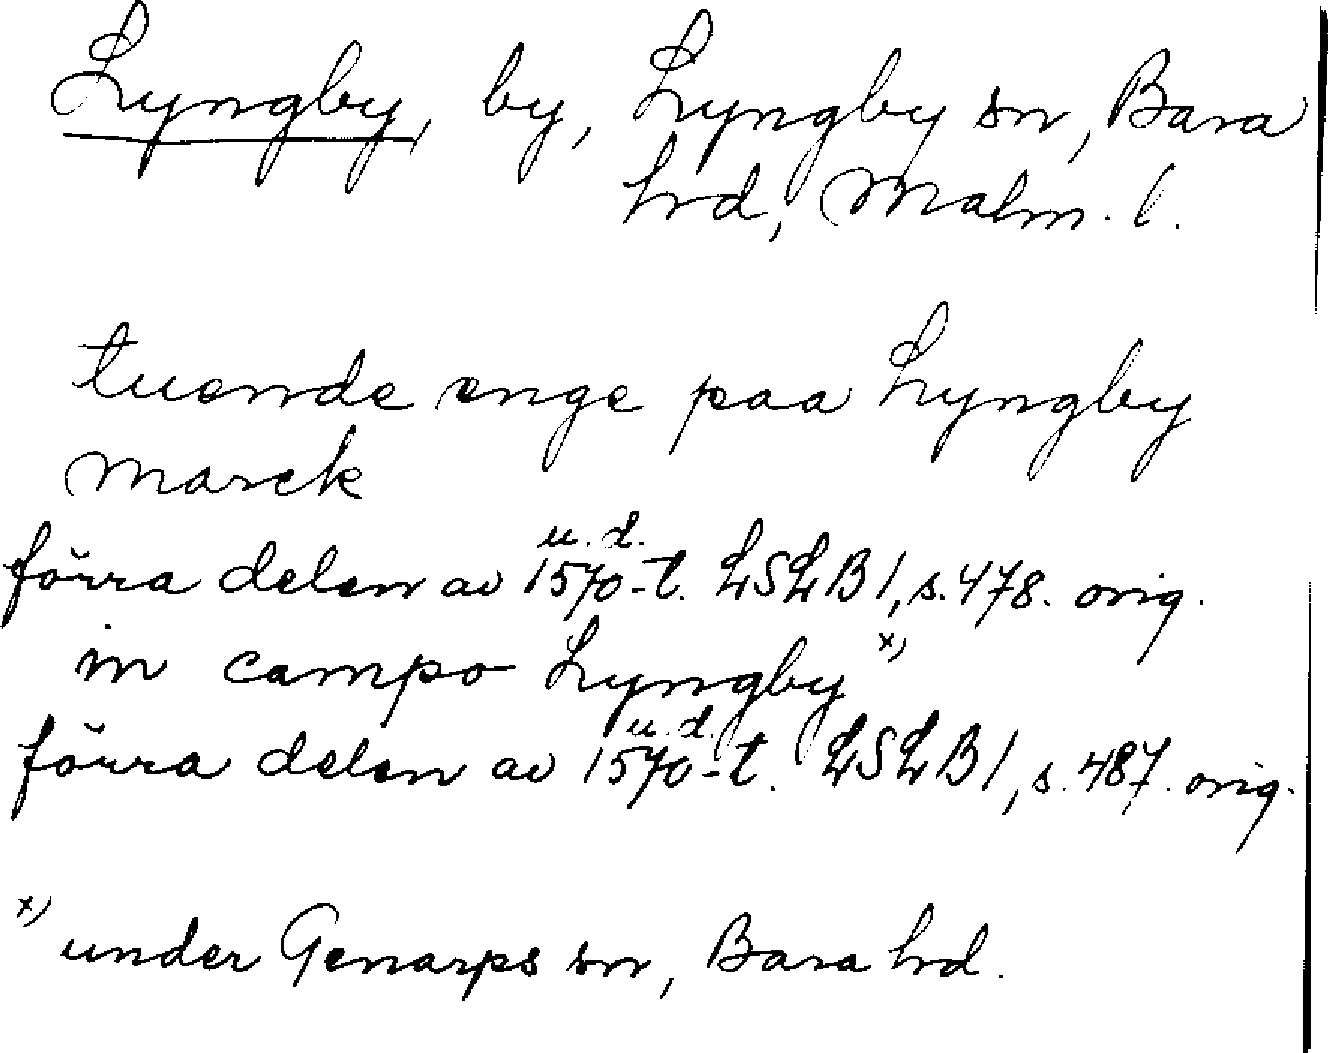 Lyngby, by, Lyngby sn, Bara
hrd, Malm. l.
tuende enge paa Lyngby
marck
u. d.
förra delen av 1570-t. LSLB 1, s. 478. orig.
in campo Lyngby x)
u. d.
förra delen av 1570-t. LSLB 1, s. 487. orig.
x) under Genarps sn, Bara hrd.